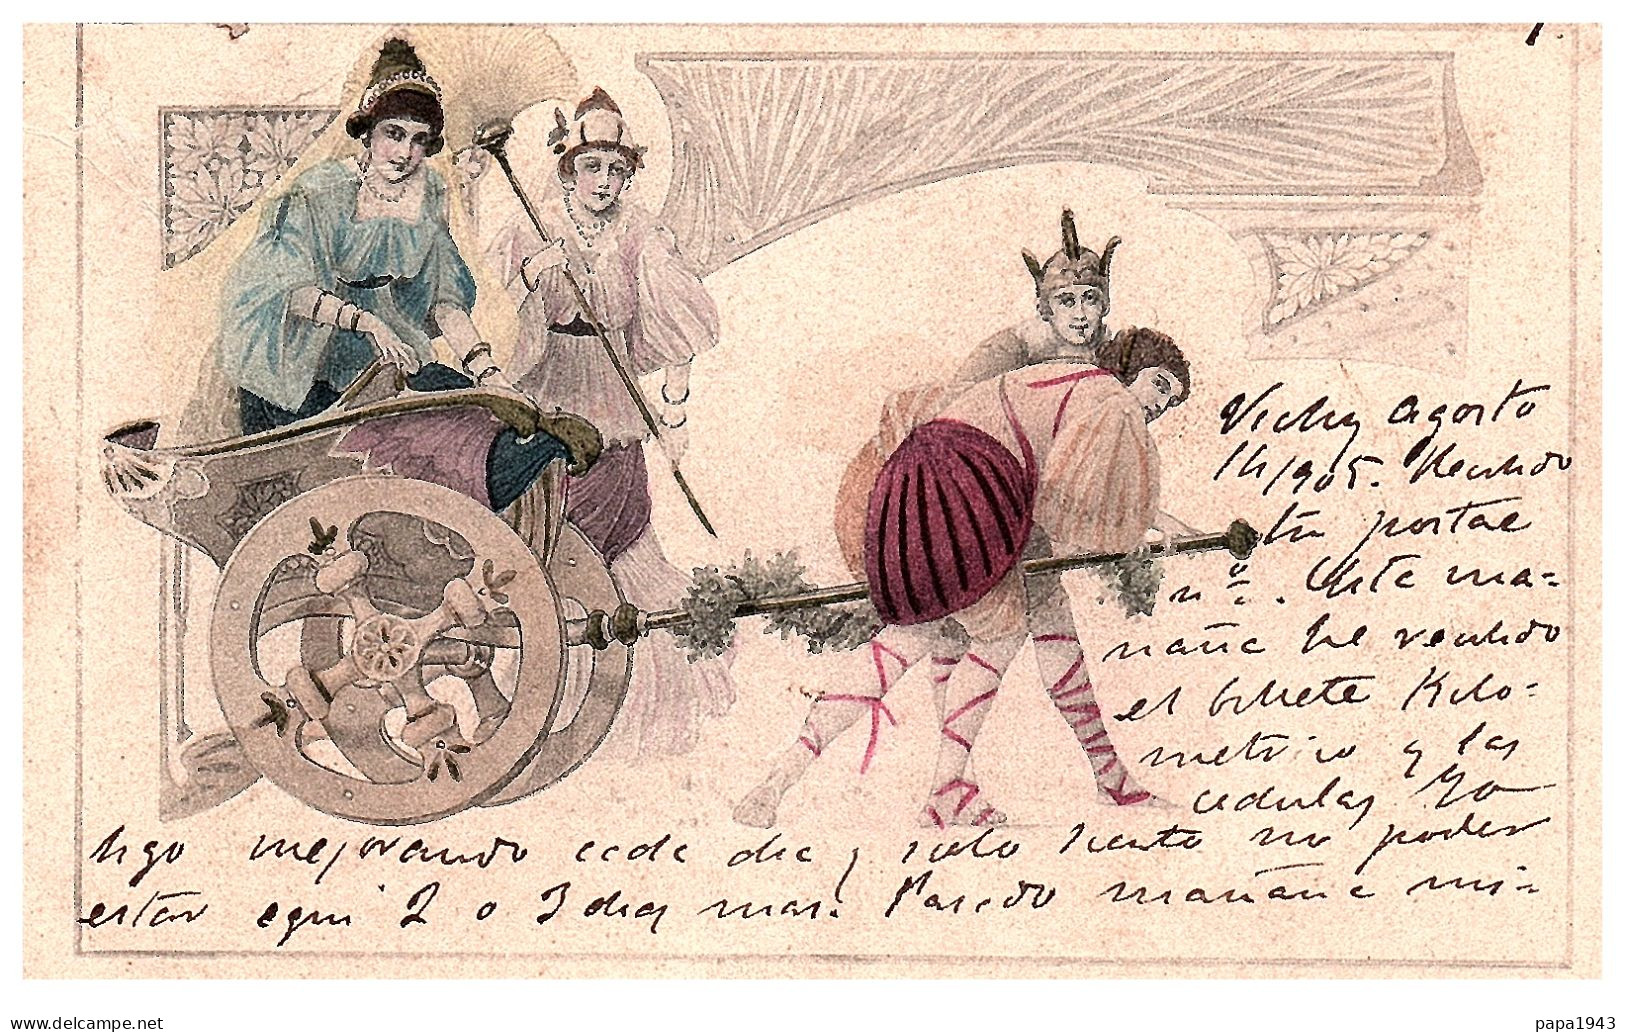 Vichy agosto
14/905. Recibido
tu postal
nº = . Esta ma=
ñana he recibido
el billete Kilo=
metrico y las
cedulas Yo
sigo mejorando cada dia y solo siento no poder
estar aqui 2 o 3 dias mas. Pasado mañana mi=
delcampe.net
papa1943